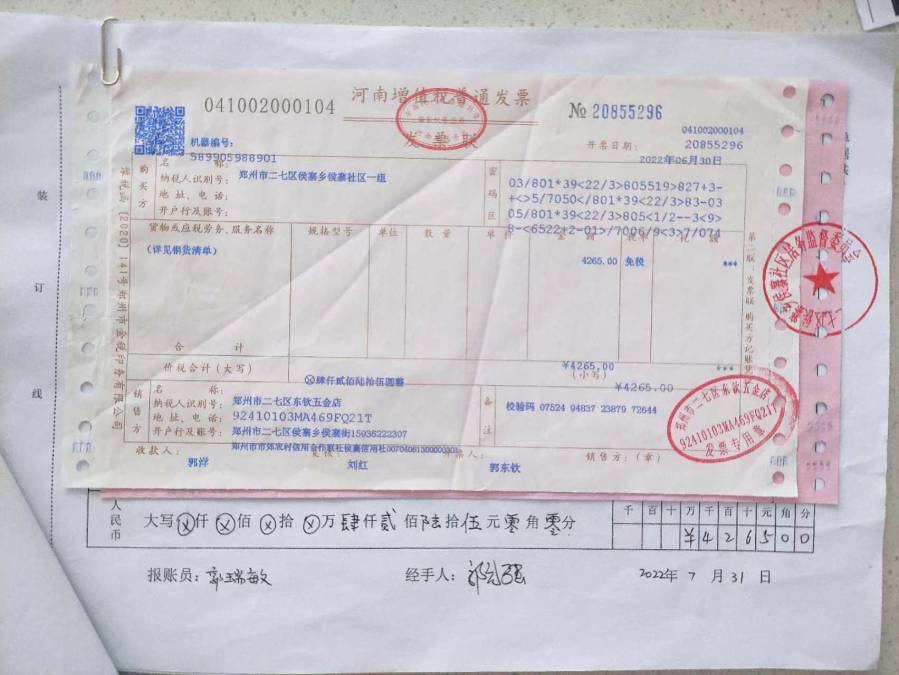 041002000104
河南增值税普通发票
№ 20855296
041002000104
20855296
开票日期:
2022年06月30日
机器编号:
589905988901
购买方
名 称:
郑州市二七区侯寨乡侯寨社区一组
纳税人识别号:
地址、电话:
开户行及账号:
密码区
03/801*39<22/3>805519>827+3-
+<>5/7050</801*39<22/3>83-03
05/801*39<22/3>805<1/2--3<9>
8-<6522+2-01>/7006/9<3>7/074
货物或应税劳务、服务名称 规格型号 单位 数量 单价 金额 税率 税额
(详见销货清单)
4265.00 免税 ***
合 计
¥4265.00 ***
价税合计(大写)
ⓧ肆仟贰佰陆拾伍圆整
(小写)
¥4265.00
销售方
名 称:
郑州市二七区东钦五金店
纳税人识别号:
92410103MA469FQ21T
地址、电话:
郑州市二七区侯寨乡侯寨街15936222307
开户行及账号:
郑州市市郊农村信用合作联社侯寨信用社00704061300000301
备注
校验码 07524 94837 23879 72644
收款人:
郭洋
刘红
郭东钦
销售方:(章)
第二联:发票联 购买方记账凭证
郑州市二七区东钦五金店
92410103MA469FQ21T
发票专用章
装
订
线
人民币
大写ⓧ仟ⓧ佰ⓧ拾ⓧ万肆仟贰佰陆拾伍元零角零分
千 百 十 万 千 百 十 元 角 分
¥ 4 2 6 5 0 0
报账员:郭瑞敏
经手人:
2022年 7 月 31 日